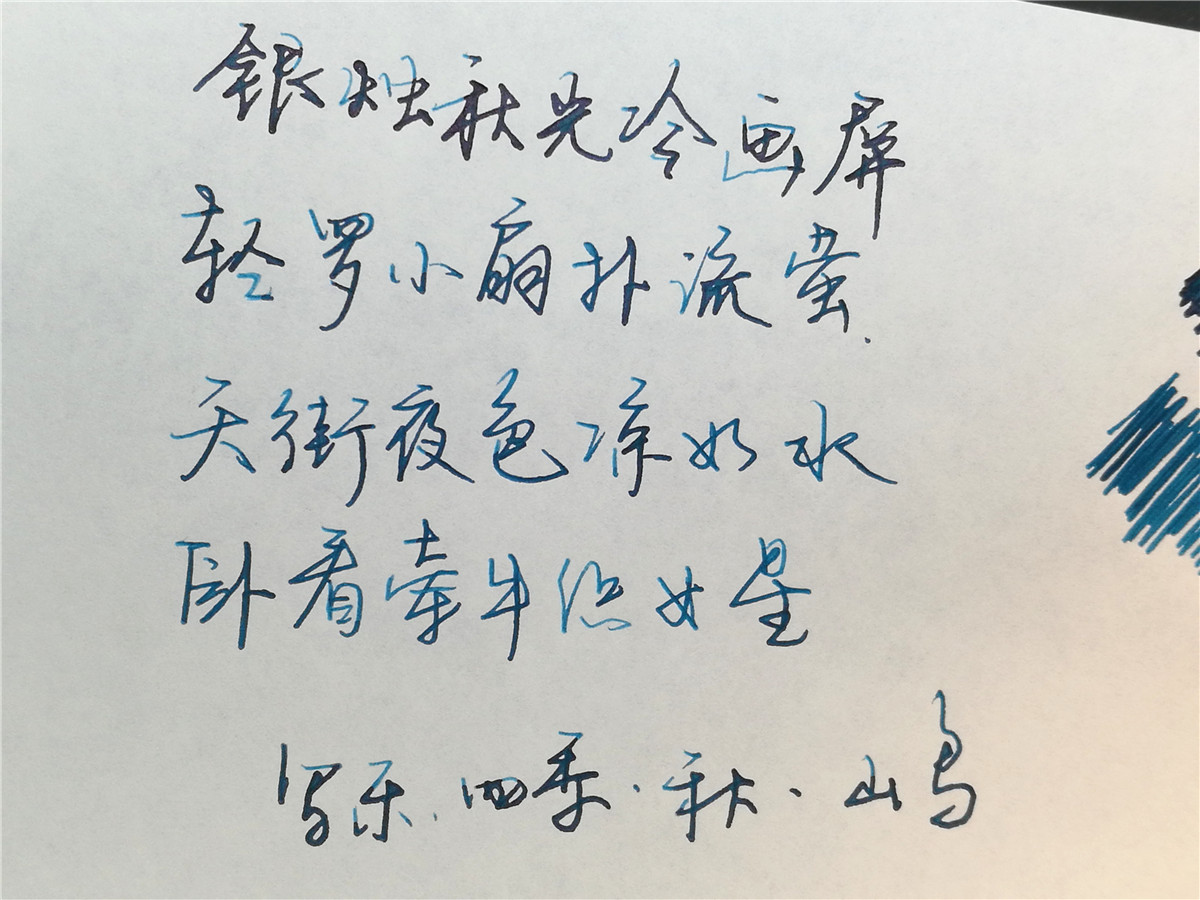 銀烛秋光冷画屏
轻罗小扇扑流萤.
天街夜色凉如水
卧看牵牛织女星
写乐.四季·秋·山鸟